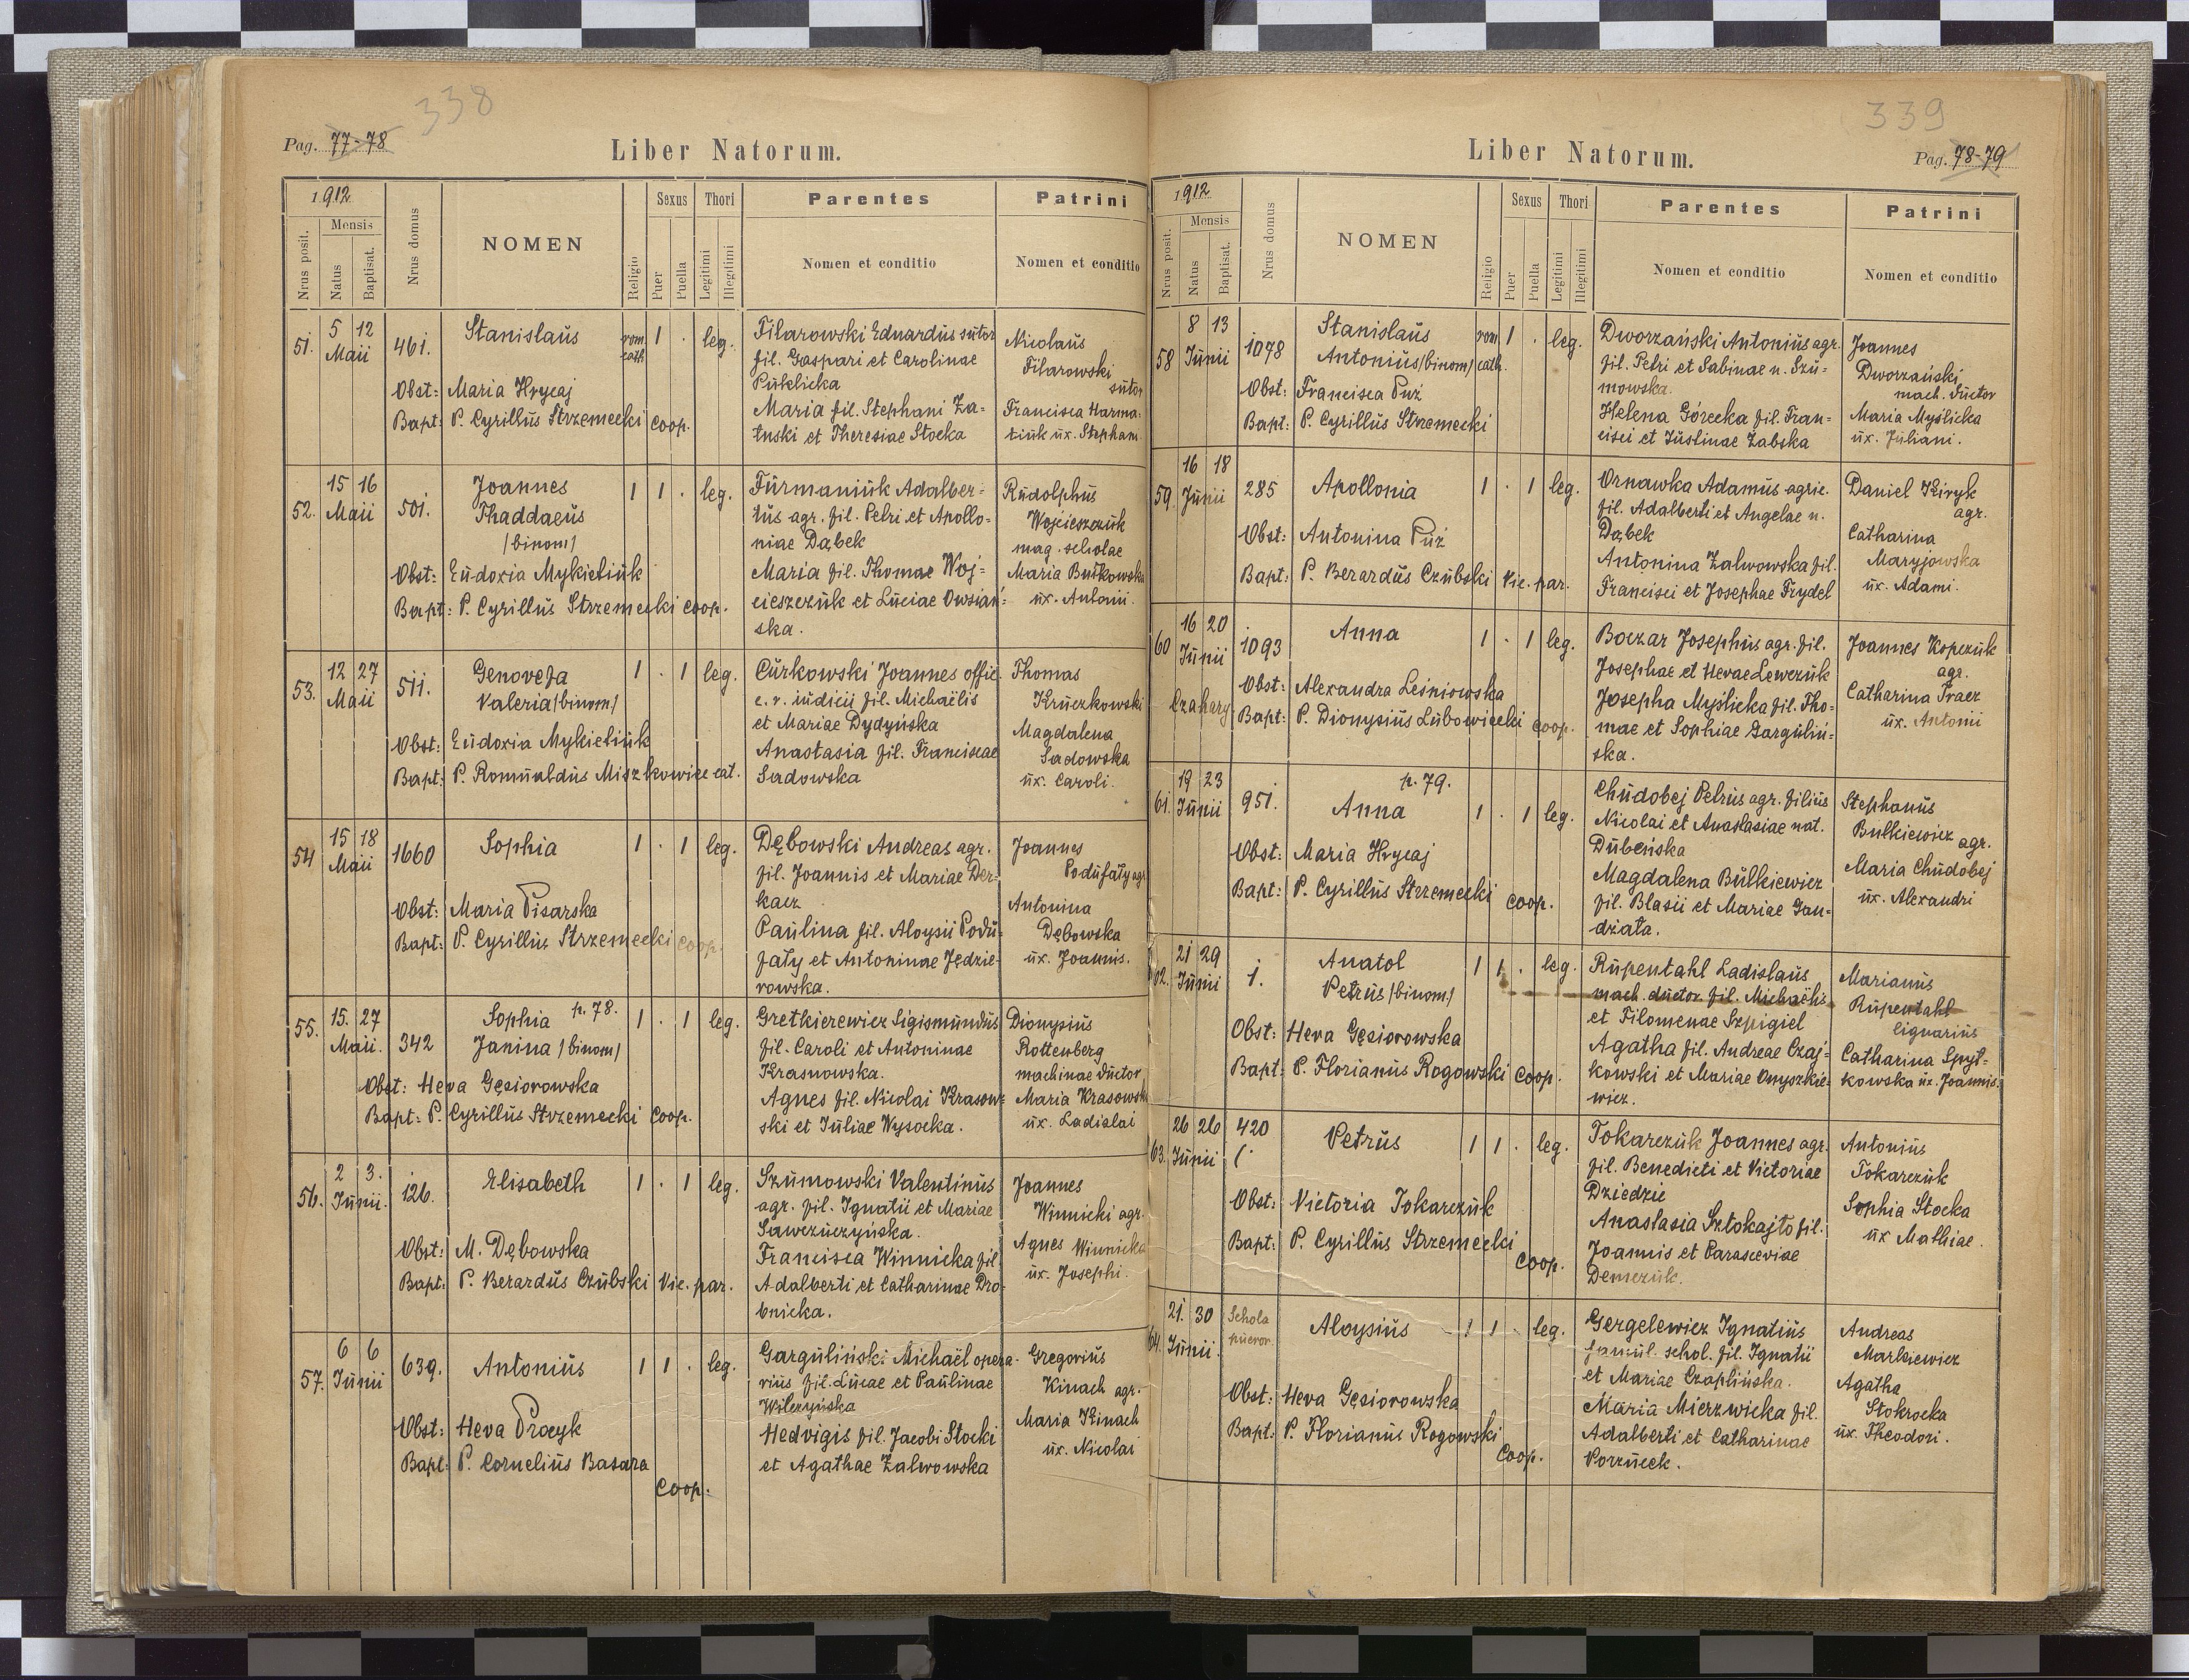 338
Pag. 77-78
Liber Natorum.
1912
Nrus posit.
Mensis
Natus
Baptisat.
Nrus domus
NOMEN
Religio
Sexus
Puer
Puella
Thori
Legitimi
Illegitimi
Parentes
Nomen et conditio
Patrini
Nomen et conditio
51.
5 12
Maii
461.
Stanislaus
rom. cath.
1 . leg.
Filarowski Eduardus sutor
fil. Gaspari et Carolinae
Puklicka
Maria fil. Stephani Za-
tuski et Theresiae Stocka
Nicolaus
Filarowski
sutor
Francisca Harma-
tiuk ux. Stephani
Obst: Maria Hrycaj
Bapt: P. Cyrillus Strzemecki coop.
52.
15 16
Maii
501.
Joannes
Thaddaeus
/binom/
1 1 . leg.
Furmaniuk Adalber-
tus agr. fil. Petri et Apollo-
niae Dąbek
Maria fil. Thomae Woj-
cieszczuk et Luciae Owsiań-
ska.
Rudolphus
Wojcieszczuk
mag. scholae
Maria Butkowska
ux. Antonii.
Obst: Eudoxia Mykietiuk
Bapt: P. Cyrillus Strzemecki coop.
53.
12 27
Maii
511.
Genovefa
Valeria /binom/
1 . 1 leg.
Curkowski Joannes offic.
c. r. iudicii fil. Michaëlis
et Mariae Dydyńska
Anastasia fil. Franciscae
Sadowska
Thomas
Kruczkowski
Magdalena
Sadowska
ux. Caroli.
Obst: Eudoxia Mykietiuk
Bapt: P. Romualdus Miszkowicz cat.
54
15 18
Maii
1660
Sophia
1 . 1 leg.
Dębowski Andreas agr.
fil. Joannis et Mariae Der-
kacz
Paulina fil. Aloysii Podu-
fały et Antoninae Jędzie-
rowska.
Joannes
Podufały agr.
Antonina
Dębowska
ux. Joannis.
Obst: Maria Pisarska
Bapt: P. Cyrillus Strzemecki coop.
55.
15. 27
Maii.
342
p. 78.
Sophia
Janina /binom/
1 . 1 leg.
Gretkierewicz Sigismundus
fil. Caroli et Antoninae
Krasnowska.
Agnes fil. Nicolai Krasow-
ski et Juliae Wysocka.
Dionysius
Rottenberg
machinae ductor
Maria Krasowska
ux. Ladislai
Obst: Heva Gęsiorowska
Bapt: P. Cyrillus Strzemecki coop.
56.
2 3.
Junii.
126.
Elisabeth
1 . 1 leg.
Szumowski Valentinus
agr. fil. Ignatii et Mariae
Sawczuczyńska.
Francisca Winnicka fil.
Adalberti et Catharinae Dro-
bnicka.
Joannes
Winnicki agr.
Agnes Winnicka
ux. Josephi.
Obst: M. Dębowska
Bapt: P. Berardus Czubski Vic. par.
57.
6 6
Junii
639.
Antonius
1 1 . leg.
Garguliński Michaël opera-
rius fil. Lucae et Paulinae
Wilczyńska
Hedvigis fil. Jacobi Stocki
et Agathae Zalwowska
Gregorius
Kinach agr.
Maria Kinach
ux. Nicolai
Obst: Heva Procyk
Bapt: P. Cornelius Basara
coop.
339
Liber Natorum.
Pag. 78-79
1912
Nrus posit.
Mensis
Natus
Baptisat.
Nrus domus
NOMEN
Religio
Sexus
Puer
Puella
Thori
Legitimi
Illegitimi
Parentes
Nomen et conditio
Patrini
Nomen et conditio
58
8 13
Junii
1078
Stanislaus
Antonius /binom/
rom. cath.
1 . leg.
Dworzański Antonius agr.
fil. Petri et Sabinae n. Szu-
mowska.
Helena Górecka fil. Fran-
cisci et Justinae Żabska
Joannes
Dworzański
mach. ductor
Maria Myślicka
ux. Juliani.
Obst: Francisca Puź
Bapt: P. Cyrillus Strzemecki
59.
16 18
Junii
285
Apollonia
1 . 1 leg.
Ornawka Adamus agric.
fil. Adalberti et Angelae n.
Dąbek
Antonina Zalwowska fil.
Francisci et Josephae Frydel
Daniel Kiryk
agr.
Catharina
Maryjowska
ux. Adami.
Obst: Antonina Puź
Bapt: P. Berardus Czubski Vic. par.
60
16 20
Junii
Czahary
1093
Anna
1 . 1 leg.
Boczar Josephus agr. fil.
Josephae et Hevae Lewczuk
Josepha Myślicka fil. Tho-
mae et Sophiae Garguliń-
ska.
Joannes Kopczuk
agr.
Catharina Tracz
ux. Antonii
Obst: Alexandra Leśniowska
Bapt: P. Dionysius Lubowiecki coop.
61.
19 23
Junii
951.
p. 79.
Anna
1 . 1 leg.
Chudobej Petrus agr. filius
Nicolai et Anastasiae nat.
Dubeńska
Magdalena Bulkiewicz
fil. Blasii et Mariae Gan-
dziata.
Stephanus
Bulkiewicz agr.
Maria Chudobej
ux. Alexandri
Obst: Maria Hrycaj
Bapt: P. Cyrillus Strzemecki coop.
62.
21 29
Junii
1.
Anatol
Petrus /binom/
1 1 . leg.
Rupentahl Ladislaus
mach. ductor fil. Michaëlis
et Filomenae Szpigiel
Agatha fil. Andreae Czaj-
kowski et Mariae Onyszkie-
wicz.
Marianus
Rupentahl
lignarius
Catharina Spyt-
kowska ux. Joannis.
Obst: Heva Gęsiorowska
Bapt: P. Florianus Rogowski coop.
63.
26 26
Junii
420
Petrus
1 1 . leg.
Tokarczuk Joannes agr.
fil. Benedicti et Victoriae
Dziedzic
Anastasia Sztokajło fil.
Joannis et Parasceviae
Demczuk.
Antonius
Tokarczuk
Sophia Stocka
ux Mathiae.
Obst: Victoria Tokarczuk
Bapt: P. Cyrillus Strzemecki
coop.
64.
21. 30
Junii.
Schola
pueror.
Aloysius
1 1 . leg.
Gergelewicz Ignatius
famul. schol. fil. Ignatii
et Mariae Czaplińska.
Maria Mierzwicka fil.
Adalberti et Catharinae
Porzucek.
Andreas
Markiewicz
Agatha
Stokrocka
ux. Theodori.
Obst: Heva Gęsiorowska
Bapt: P. Florianus Rogowski
coop.